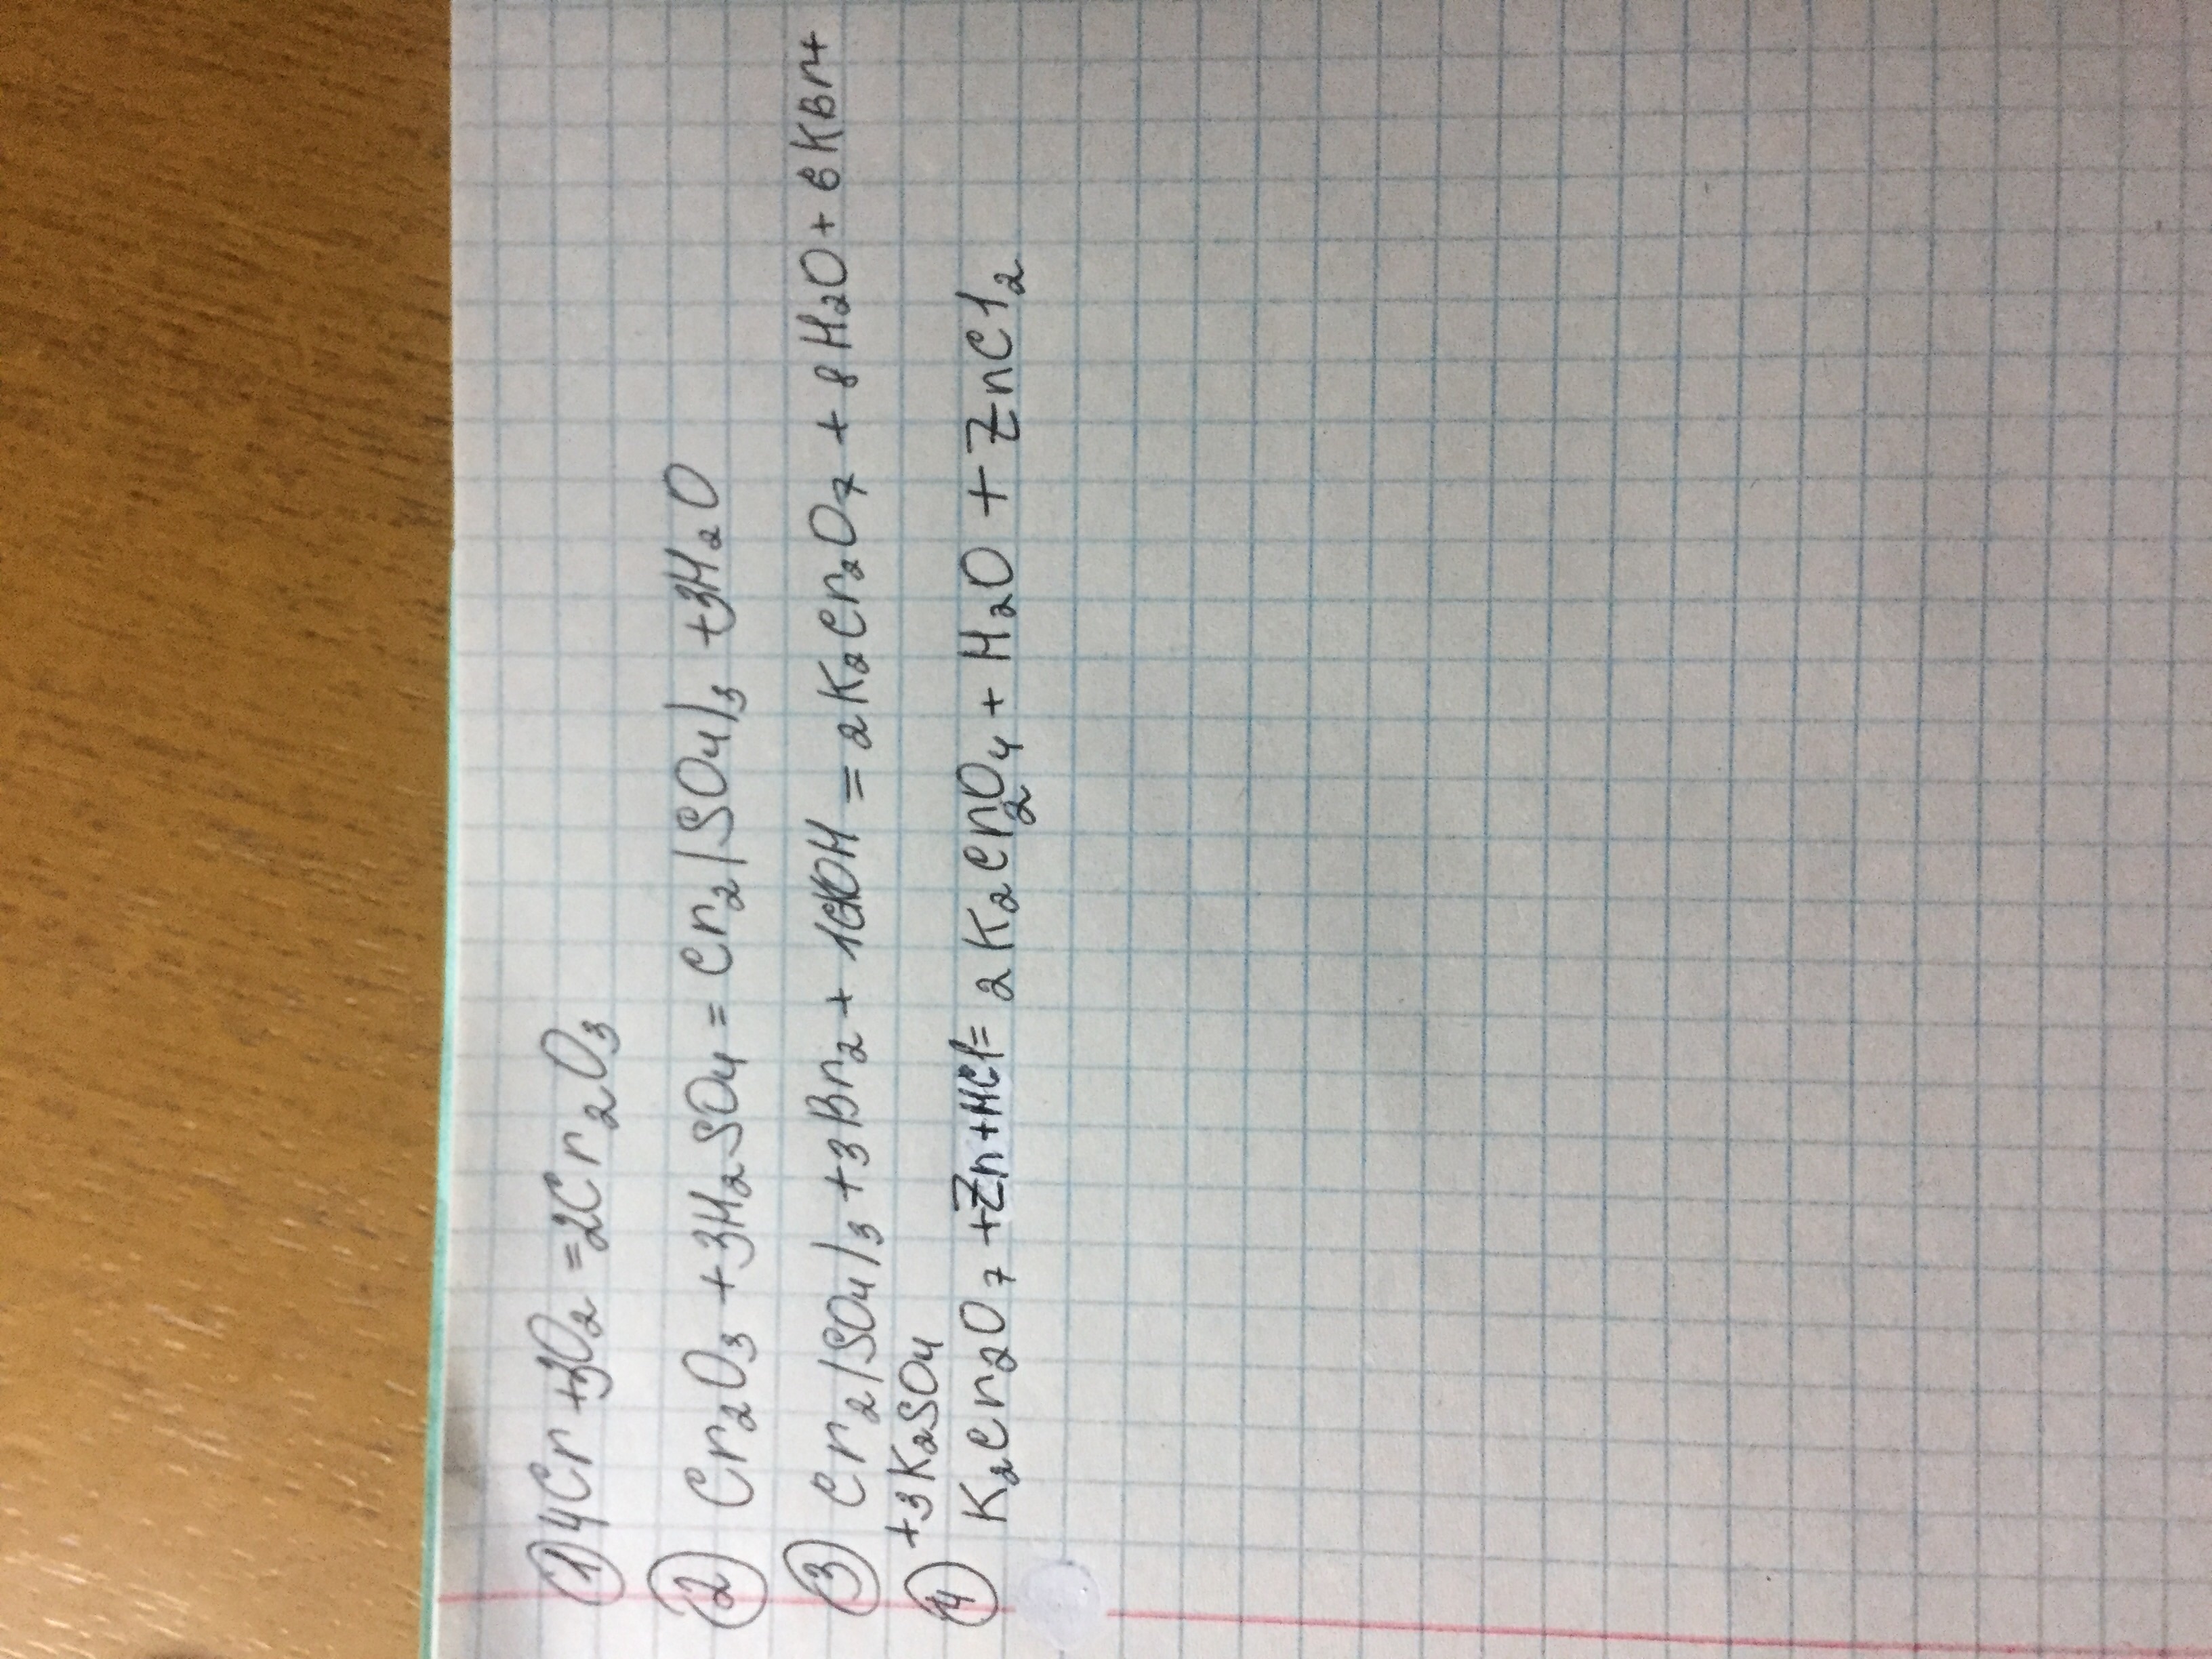 ① 4Cr+3O₂=2Cr₂O₃
② Cr₂O₃+3H₂SO₄=Cr₂(SO₄)₃+3H₂O
③ Cr₂(SO₄)₃+3Br₂+16KOH=2K₂Cr₂O₇+8H₂O+6KBr+
+3K₂SO₄
④ K₂Cr₂O₇+Zn+HCl=2K₂Cr₂O₄+H₂O+ZnCl₂